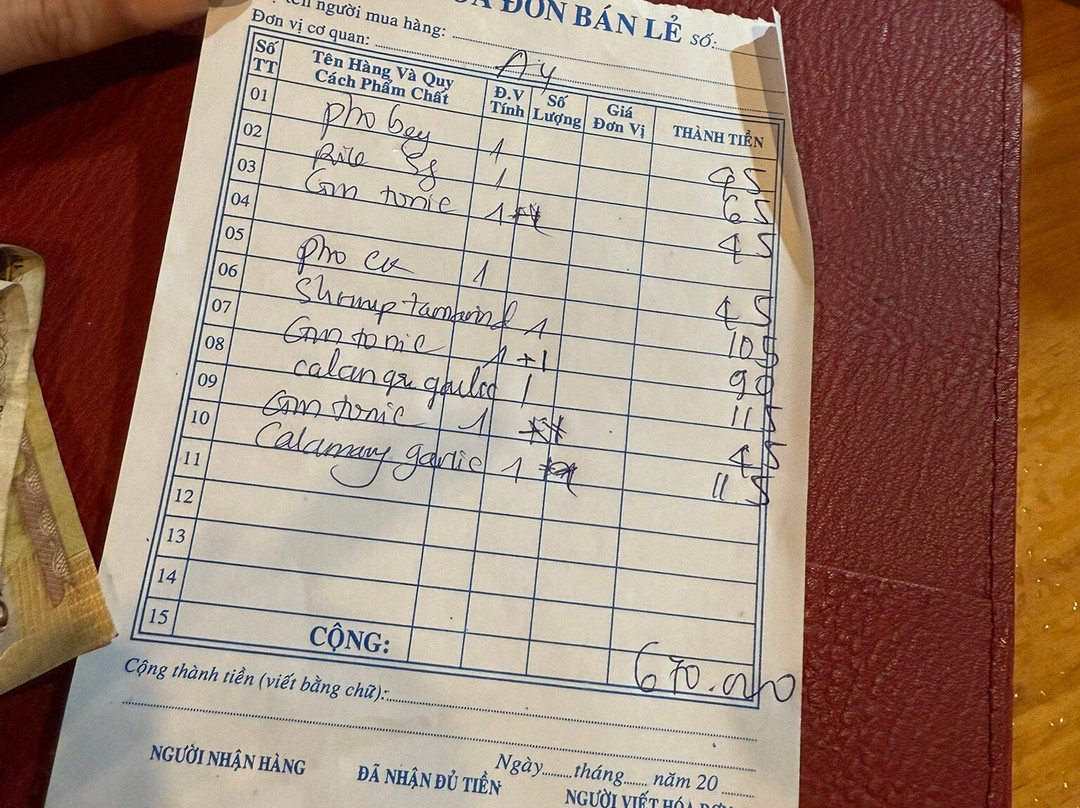 ĐƠN BÁN LẺ SỐ:
tên người mua hàng:
Đơn vị cơ quan: A4
Số TT Tên Hàng Và Quy Cách Phẩm Chất Đ.V Tính Số Lượng Giá Đơn Vị THÀNH TIỀN
01 pho bey 1 95
02 Rice 1 65
03 Gin tonic 1 45
04
05 pho 1 45
06 Shrimp tamarind 1 105
07 Gin tonic 1+1 90
08 1 115
09 Gin tonic 1 45
10 Calamary garlic 1 115
11
12
13
14
15
CỘNG: 670.000
Cộng thành tiền (viết bằng chữ):
Ngày tháng năm 20
NGƯỜI NHẬN HÀNG ĐÃ NHẬN ĐỦ TIỀN NGƯỜI VIẾT HÓA ĐƠN